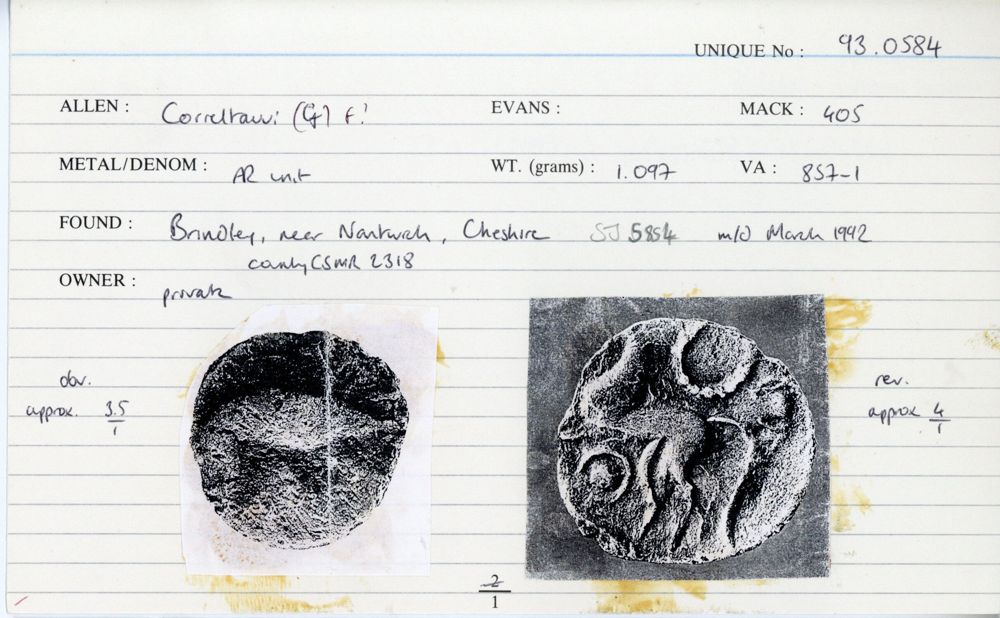 UNIQUE No : 93.0584
ALLEN : Correltauvi (G) F? EVANS : MACK : 405
METAL/DENOM : AR unit WT. (grams) : 1.097 VA : 857-1
FOUND : Brindley, near Nantwich, Cheshire SJ 5854 m/d March 1992
county CSMR 2318
OWNER : private
obv.
approx. 3.5/1
rev.
approx 4/1
2/1